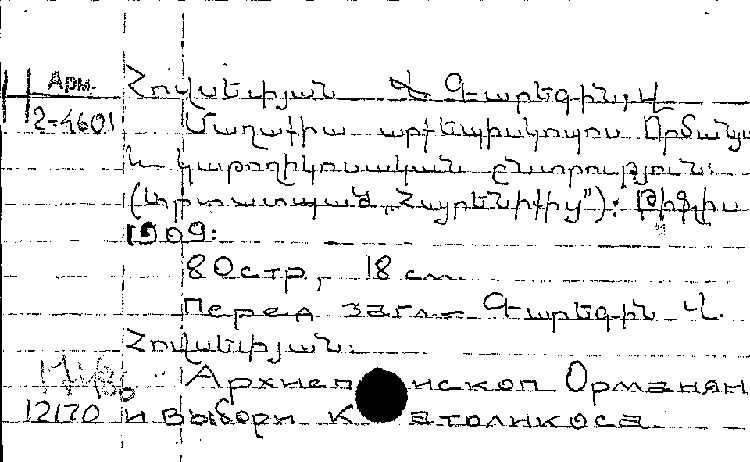 Арм. Հովսեփյան Գարեգին, Վ
2-4601 Մաղաքիա արքեպիսկոպոս Օրմանյան
և կաթողիկոսական ընտրություն:
(Արտատպած „Հայրենիքից"): Թիֆլիս
1909:
80 стр, 18 см
Перед загл: Գարեգին Վ.
Հովսեփյան:
Архиепископ Орманян
12170 и выбори Католикоса